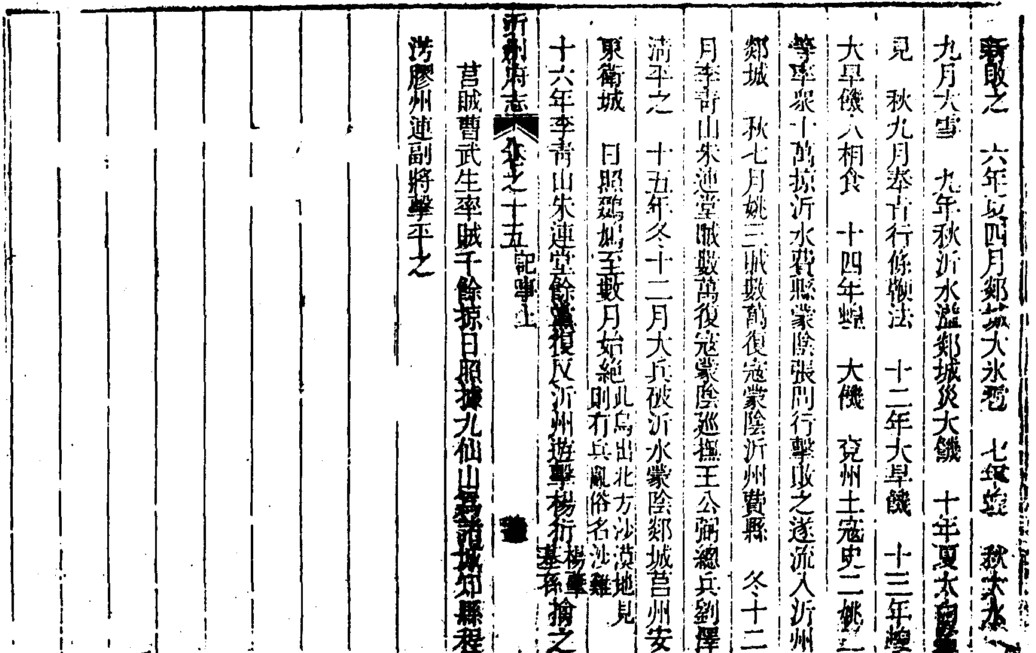 新敗之　六年夏四月郯城大氷雹　七年蝗　秋大水
九月大雪　九年秋沂水溢郯城災大饑　十年夏太白晝
見　秋九月奉古行條鞭法　十二年大旱饑　十三年蝗
大旱饑人相食　十四年蝗　大饑　兗州土寇史二姚三
等率衆十萬掠沂水費縣蒙陰張問行擊敗之遂流入沂州
郯城　秋七月姚三賊數萬復寇蒙陰沂州費縣　冬十二
月李青山朱連堂賊數萬復寇蒙陰廵撫王公弼總兵劉澤
清平之　十五年冬十二月大兵破沂水蒙陰郯城莒州安
東衛城　日照鵶鳩至數月始絶此鳥出北方沙漠地見則有兵亂俗名沙雞
十六年李青山朱連堂餘黨復反沂州遊擊楊衍楊肇基孫擒之
沂州府志　卷之十五　記事上
莒賊曹武生率賊千餘掠日照據九仙山爲諸城知縣程
淓膠州連副將擊平之